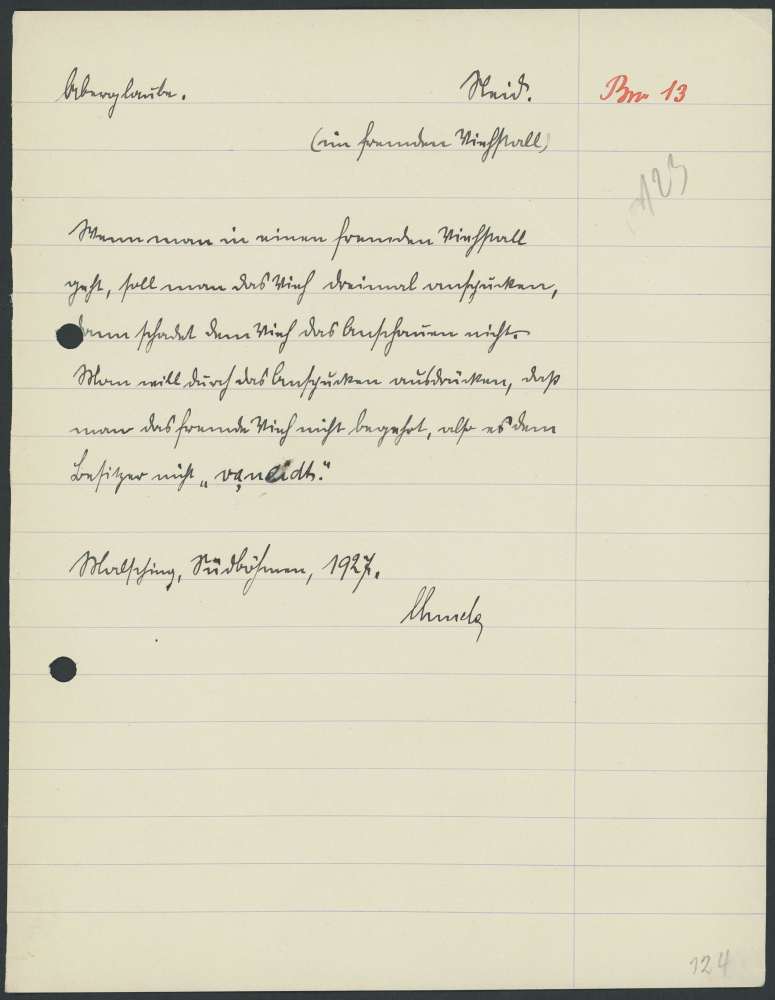 Aberglaube. Neid. Br 13
(im fremden Viehstall)
123
Wenn man in einen fremden Viehstall
geht, soll man das Vieh dreimal anspucken,
dann schadet dem Vieh das Anschauen nicht.
Man will durch das Anspucken ausdrücken, daß
man das fremde Vieh nicht begehrt, also es dem
Besitzer nicht „vaneidt."
Malsching, Südböhmen, 1927.
124